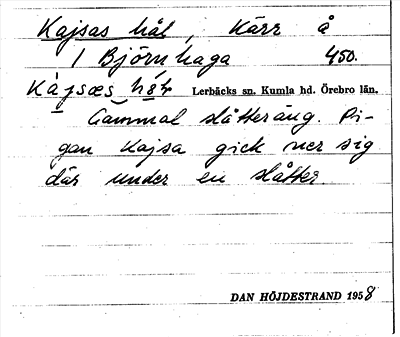 Kajsas hål, Kärr å
1 Björnhaga 450.
Lerbäcks sn. Kumla hd. Örebro län.
Gammal slåtteräng. Pi-
gan Kajsa gick ner sig
där under en slåtter.
DAN HÖJDESTRAND 1958